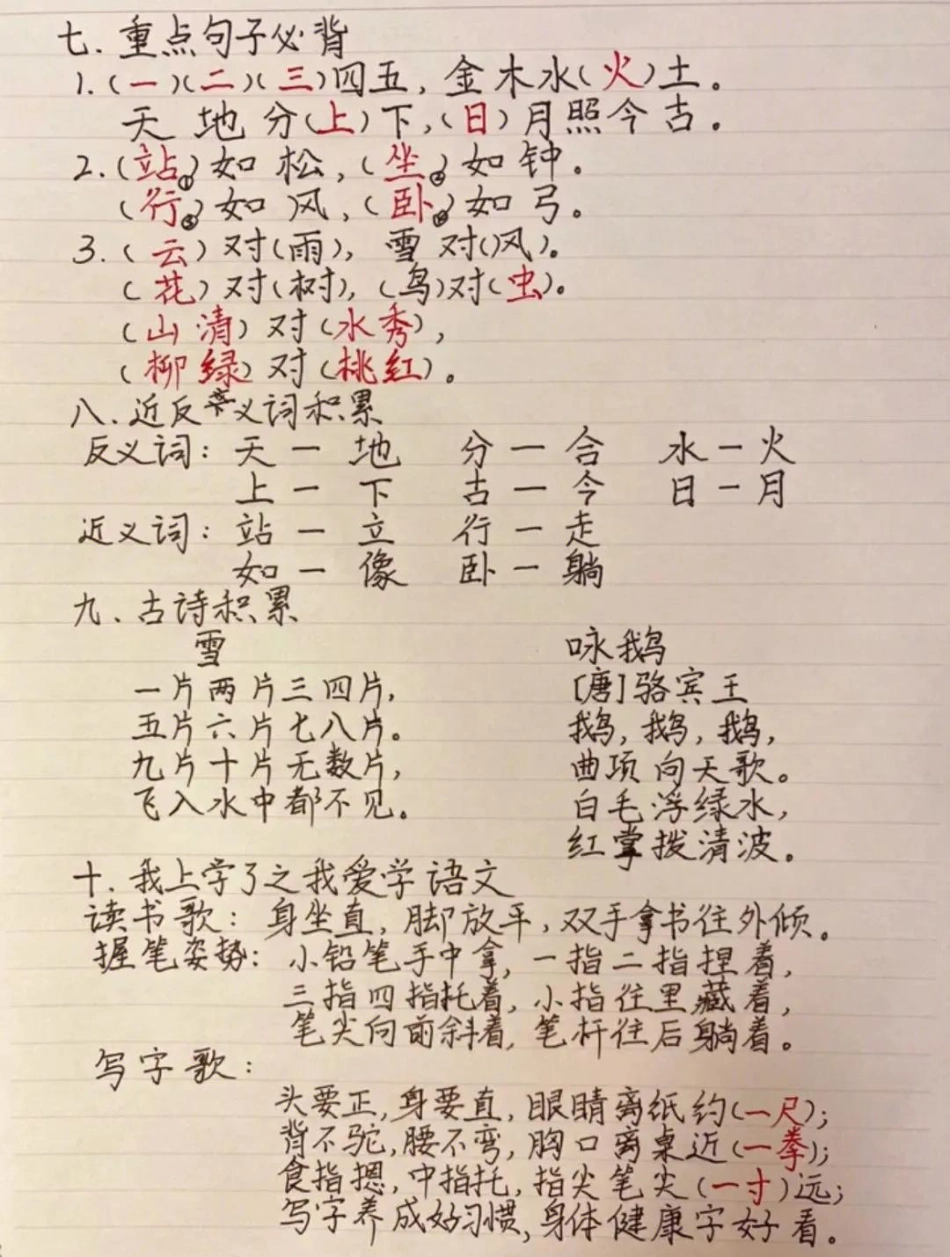 七.重点句子必背
1.(一)(二)(三)四五,金木水(火)土。
天地分(上)下,(日)月照今古。
2.(站①)如松,(坐②)如钟。
(行③)如风,(卧④)如弓。
3.(云)对(雨),雪对(风)。
(花)对(树),(鸟)对(虫)。
(山清)对(水秀),
(柳绿)对(桃红)。
八.近反义词积累
反义词:天一地 分一合 水一火
上一下 古一今 日一月
近义词:站一立 行一走
如一像 卧一躺
九.古诗积累
雪
一片两片三四片,
五片六片七八片。
九片十片无数片,
飞入水中都不见。
咏鹅
[唐]骆宾王
鹅,鹅,鹅,
曲项向天歌。
白毛浮绿水,
红掌拨清波。
十.我上学了之我爱学语文
读书歌:身坐直,脚放平,双手拿书往外倾。
握笔姿势:小铅笔手中拿,一指二指捏着,
三指四指托着,小指往里藏着,
笔尖向前斜着,笔杆往后躺着。
写字歌:
头要正,身要直,眼睛离纸约(一尺);
背不驼,腰不弯,胸口离桌近(一拳);
食指摁,中指托,指尖笔尖(一寸)远;
写字养成好习惯,身体健康字好看。